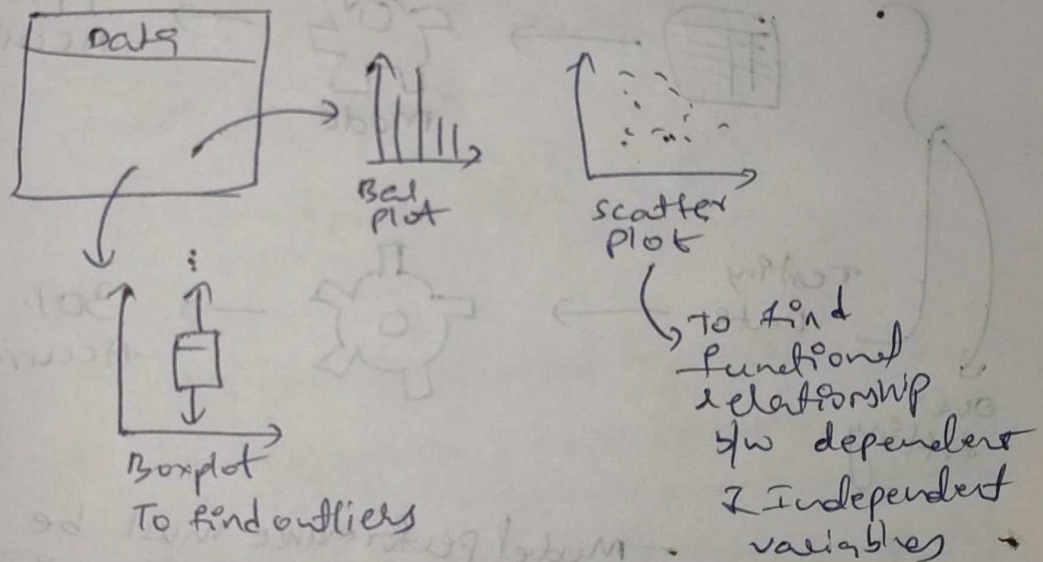 Data
Bar
plot
scatter
plot
To find
functional
relationship
b/w dependent
& Independent
variables
Boxplot
To find outliers